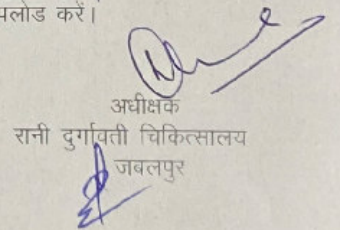 पलोड करें।
अधीक्षक
रानी दुर्गावती चिकित्सालय
जबलपुर